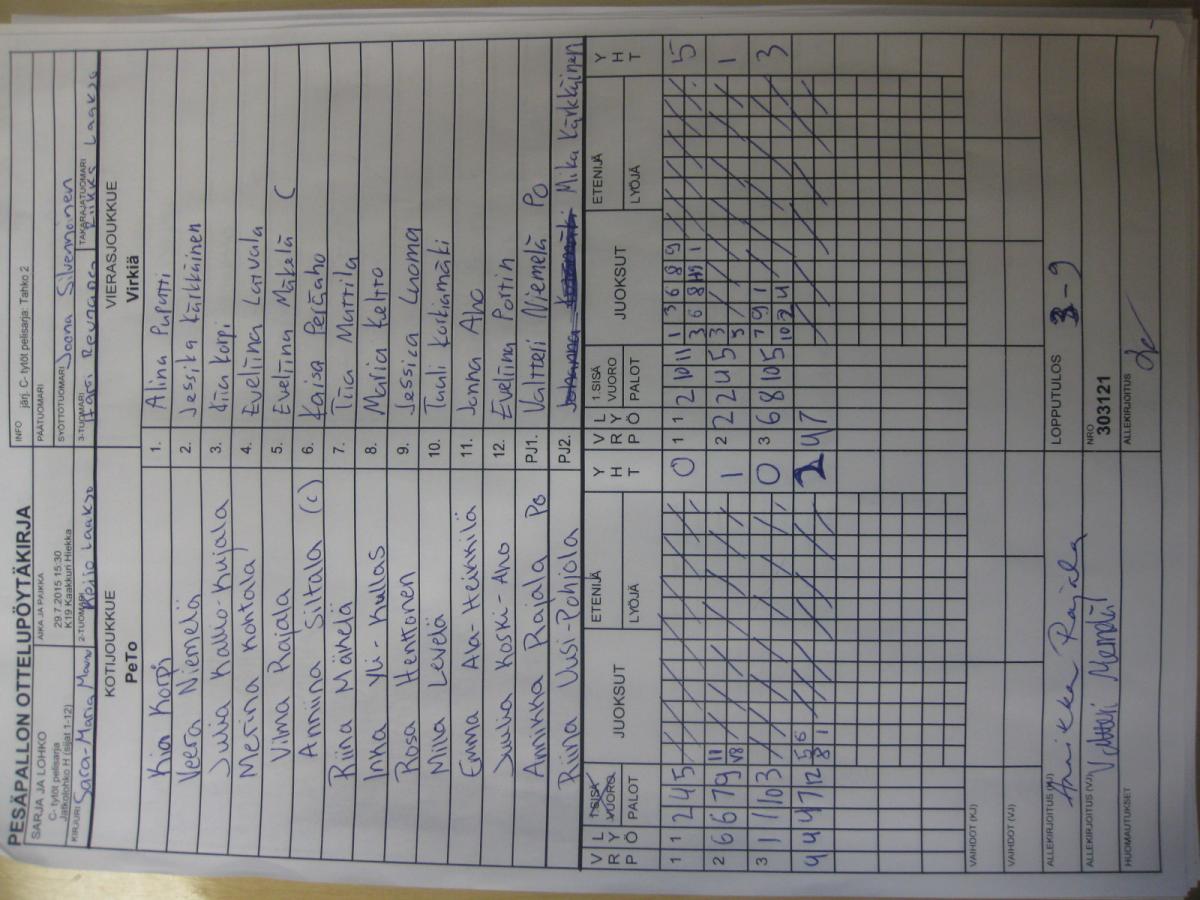 PESÄPALLON OTTELUPÖYTÄKIRJA
SARJA JA LOHKO
C- tytöt pelisarja
Jatkolohko H (sijat 1-12)
AIKA JA PAIKKA
29.7.2015 15:30
K19 Kaakkuri Hiekka
INFO järj. C- tytöt pelisarja: Tahko 2
PÄÄTUOMARI
SYÖTTÖTUOMARI Joona Silvennoinen
KIRJURI Sara-Maria
2-TUOMARI Keijo Laakso
3-TUOMARI
TAKARAJATUOMARI Laakso
KOTIJOUKKUE
PeTo
VIERASJOUKKUE
Virkiä
Kia Korpi 1. Alina Puputti
Veera Niemelä 2. Jessika Kärkkäinen
Julia Kalko-Kujala 3. Kiia Korpi
Merina Kohtala 4. Eveliina Latvala
Vilma Rajala 5. Eveliina Mäkelä C
Anniina Siltala (c) 6. Kaisa Peräaho
Riina Mäkelä 7. Tiia Mattila
Inka Yli-Kullas 8. Maria Keltto
Rosa Henttonen 9. Jessica Luoma
Miia Levelä 10. Tuuli Korkiamäki
Emma Ala-Heikkilä 11. Jonna Aho
Juulia Koski-Aho 12. Eveliina Portin
Annikka Rajala Po PJ1. Valtteri Niemelä Po
Riina Uusi-Pohjola PJ2. Mika Kärkkäinen
V R P L Y Ö 1.SISÄ VUORO PALOT JUOKSUT ETENIJÄ LYÖJÄ Y H T V R P L Y Ö 1.SISÄ VUORO PALOT JUOKSUT ETENIJÄ LYÖJÄ Y H T
1 1 2 4 5 0 1 1 2 10 11 1 3 6 8 9 5
2 6 6 7 9 11 1 2 2 2 4 5 3 1
3 1 1 10 3 0 3 6 8 10 5 7 9 1 3
4 4 4 7 12 5 6 2 4 7
VAIHDOT (KJ)
VAIHDOT (VJ)
ALLEKIRJOITUS (KJ) Annikka Rajala
LOPPUTULOS 3 - 9
ALLEKIRJOITUS (VJ) Valtteri Niemelä
NRO
303121
HUOMAUTUKSET
ALLEKIRJOITUS